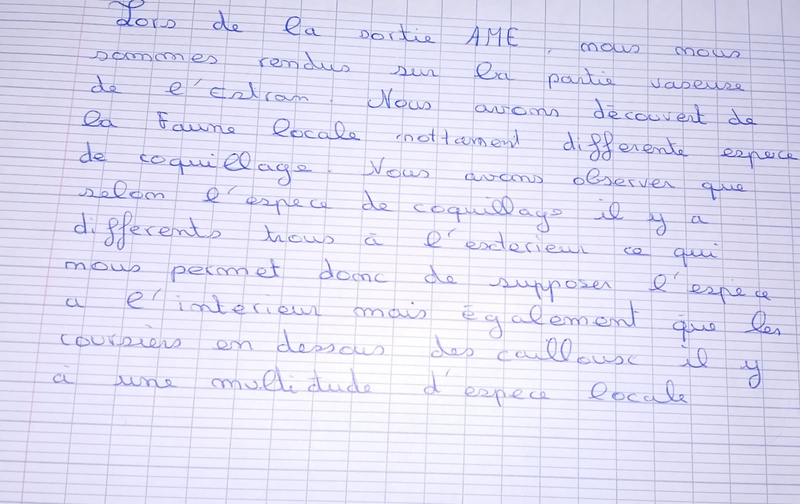 Lors de la sortie AME, nous nous
sommes rendus sur la partie vaseuse
de l'Estran. Nous avons découvert de
la Faune locale nottament differente espece
de coquillage. Nous avons observer que
selon l'espece de coquillage il y a
différents trous à l'exterieur ce qui
nous permet donc de supposer l'espèce
a l'interieur mais également que les
coursiers en dessous des caillousc il y
à une multidude d'espece locale